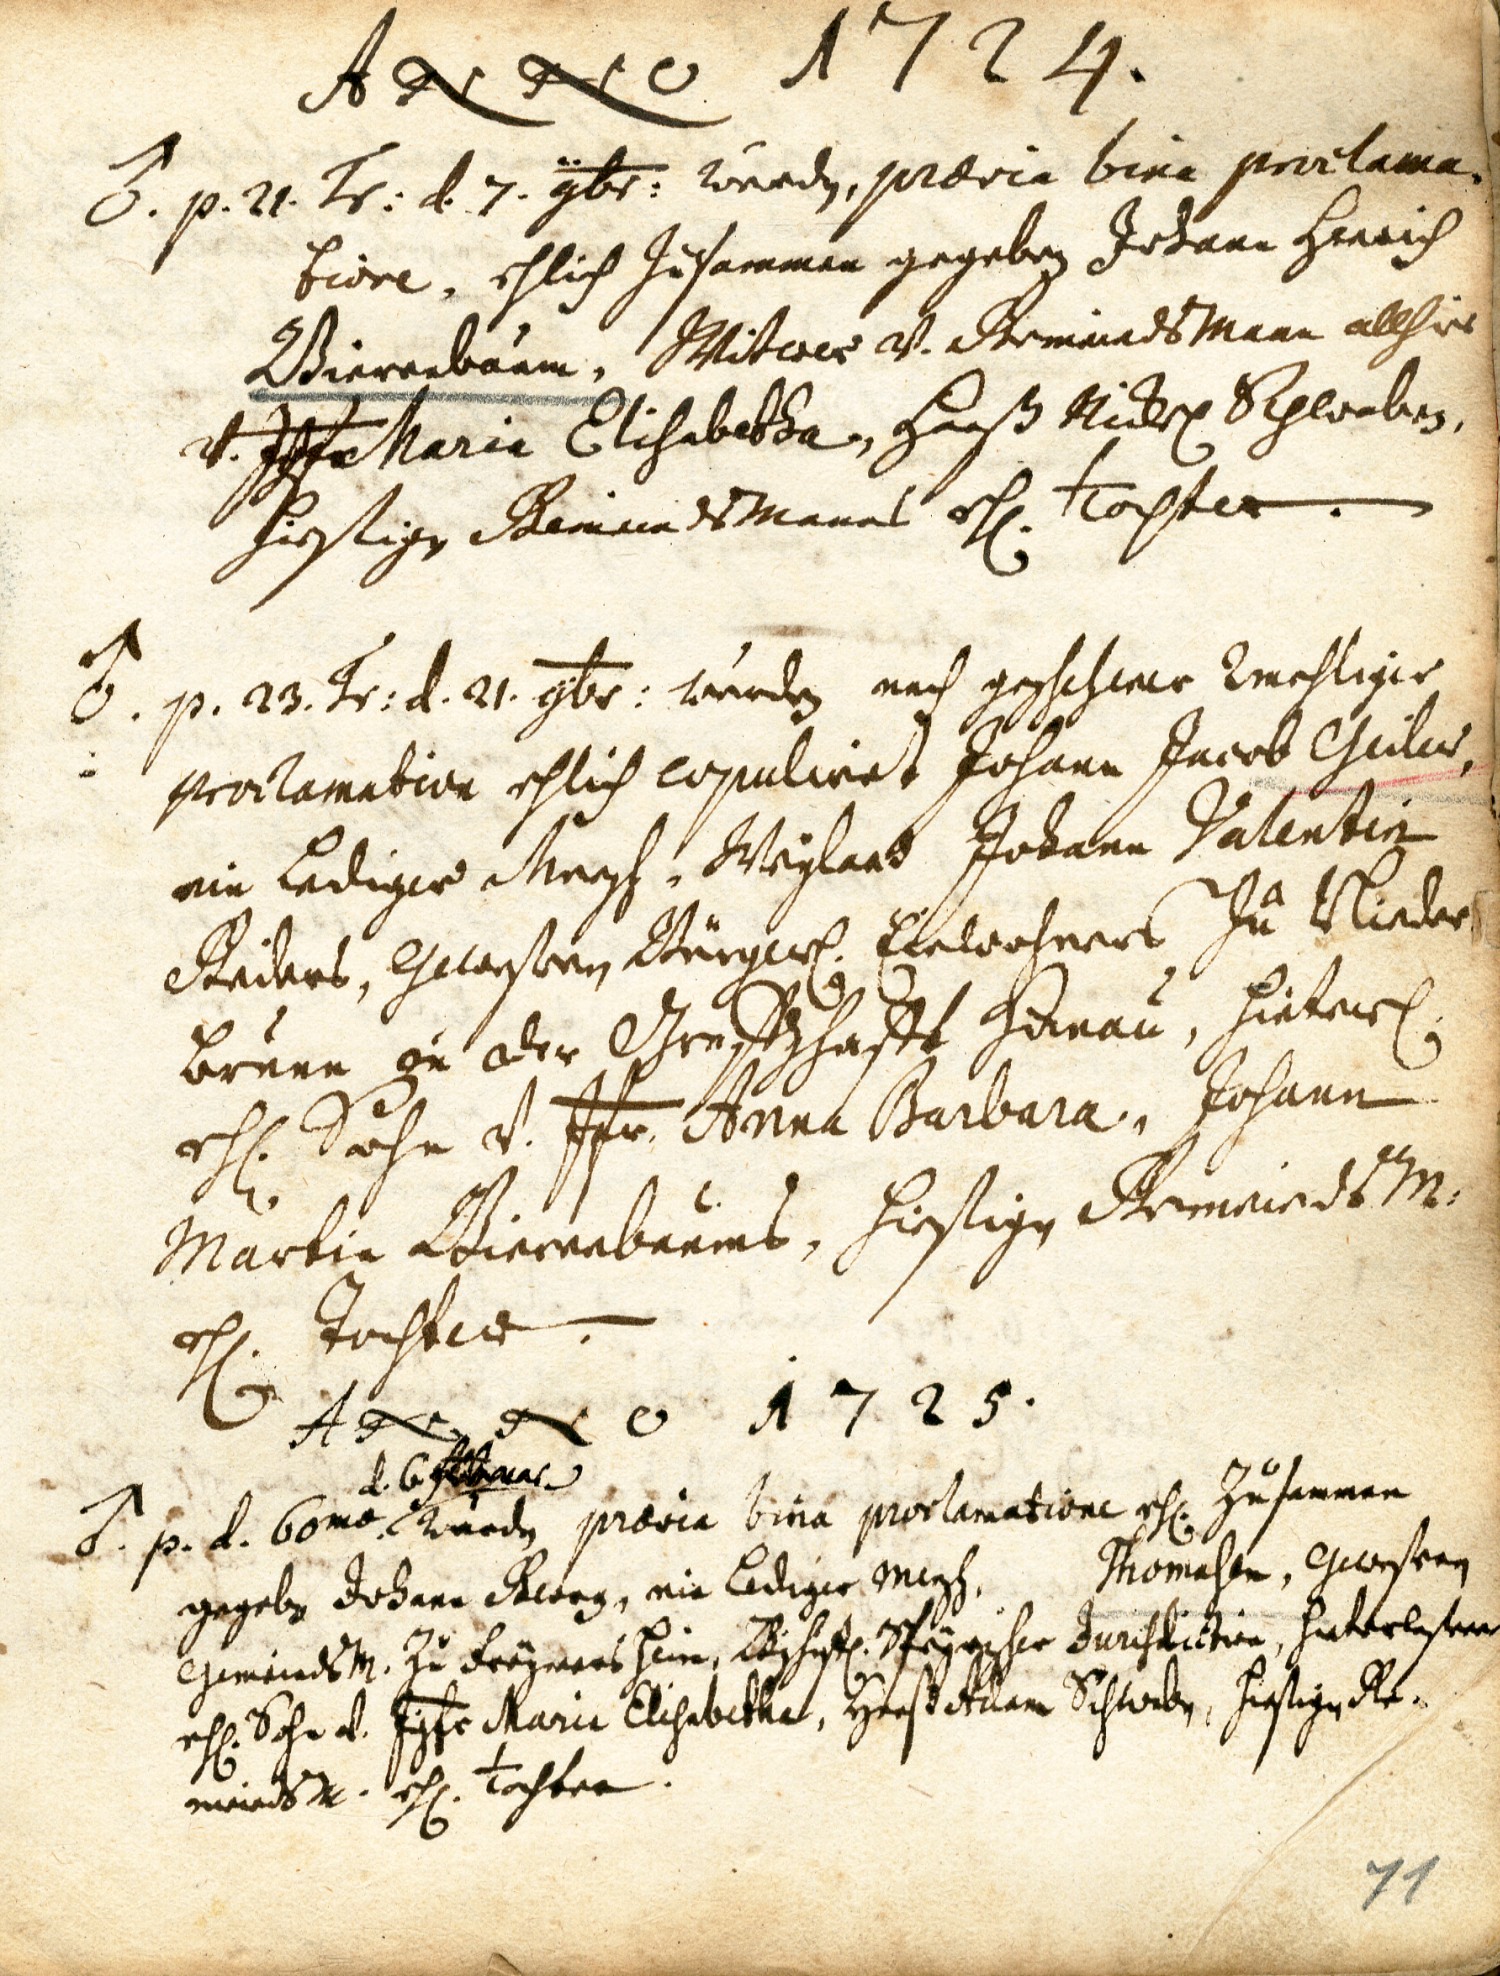 ANNO 1724.
♂. p. 21. Tr: d. 7. 9br: wurdn, prævia bina proclama-
tione, ehlich zusammen gegeben Johann Henrich
Bierenbaum, Witwer v. Gemeindsmann allhier
v. Jgfr Maria Elisabetha, Hanß Schwaben,
hiesigen Gemeindsmanns ehl. Tochter.
♂. p. 23. Tr: d. 21. 9br: wurden nach geschehener 2mahliger
proclamation ehlich copuliret Johann Jacob Geider,
ein Lediger Mensch, Weyland Johann Valentin
Geiders, Gewesenen Burgers. Einwohners zu Nieder
brunn in der Graffschafft Hanau, hinterl.
ehl. Sohn v. Jgfr. Anna Barbara, Johann
Martin Bierenbaums, hiesigen Gemeinds M:
ehl. Tochter.
ANNO 1725.
d. 6 Februar
♂. p. d. 60mæ. wurdn prævia bina proclamatione ehl. zusammen
gegebn Johann Georg, ein Lediger Mensch, Thomasen, Gewesenen
Gemeinds M. zu Freymersheim, Jurisdiction, hinterlassener
ehl. Sohn v. Jgfr Maria Elisabetha, Hanß Adam Schwabn, hiesigen Ge-
meinds M. ehl. Tochter.
71